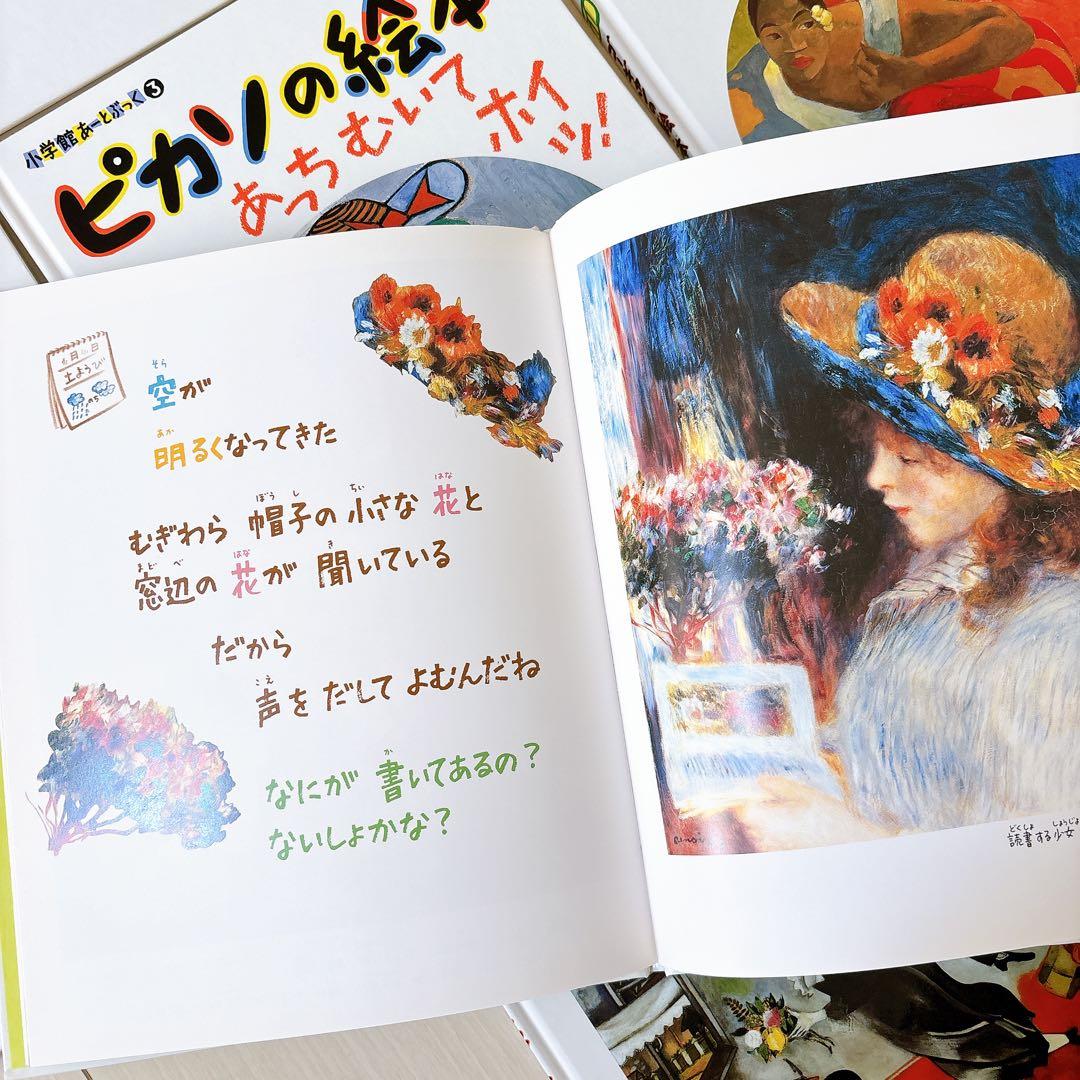 小学館あーとぶっく3
ピカソの絵本
あっちむいて
ホイッ!
土ようび
のち
空が
明るくなってきた
むぎわら 帽子の 小さな 花と
窓辺の 花が 聞いている
だから
声を だして よむんだね
なにが 書いてあるの?
ないしょかな?
Renoir
読書する少女